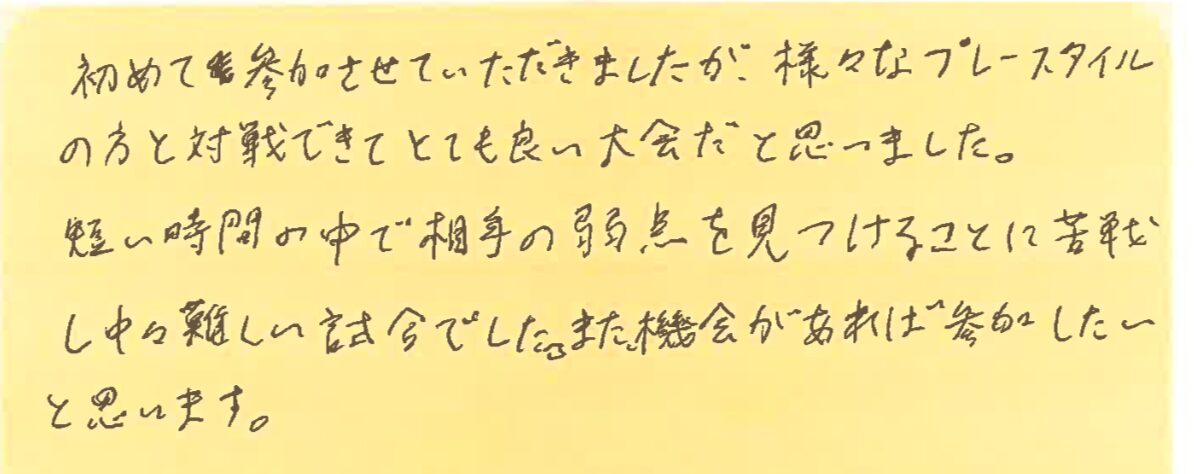 初めて参加させていただきましたが、様々なプレースタイル
の方と対戦できてとても良い大会だと思いました。
短い時間の中で相手の弱点を見つけることに苦戦
し中々難しい試合でした。また機会があれば参加したい
と思います。